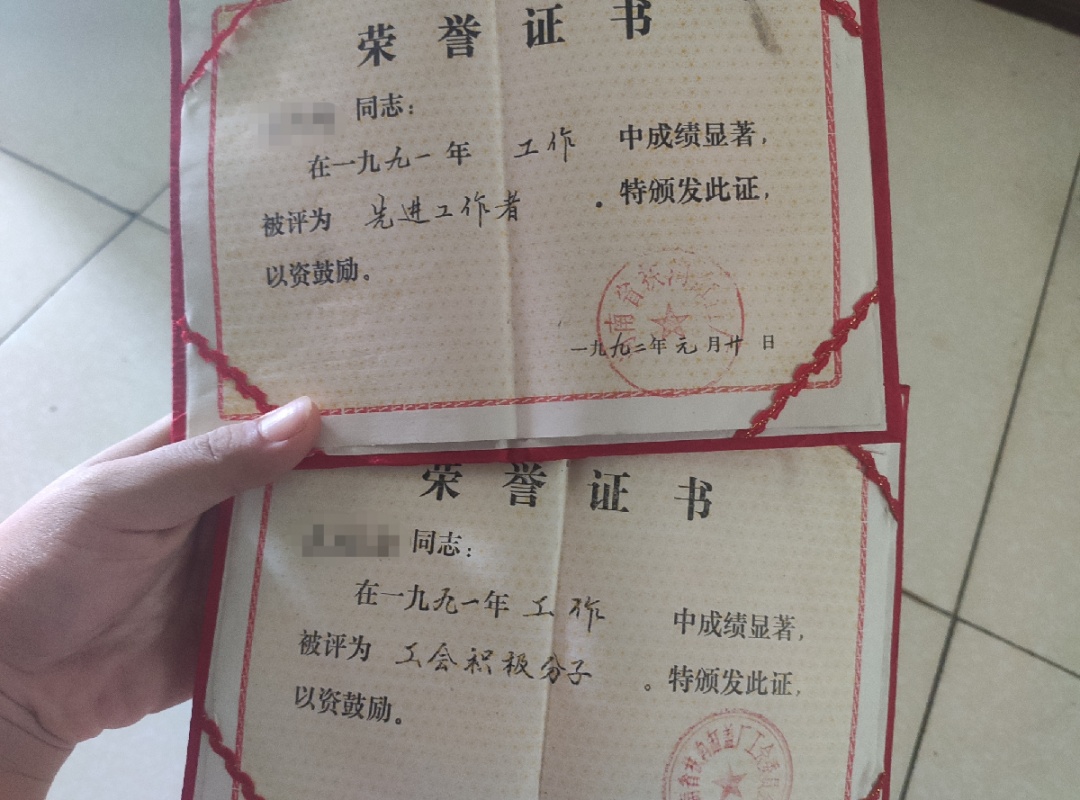 荣誉证书
同志：
在一九九一年 工作 中成绩显著，
被评为 先进工作者 . 特颁发此证，
以资鼓励。
一九九二年元月廿日
荣誉证书
同志：
在一九九一年 工作 中成绩显著，
被评为 工会积极分子 。特颁发此证，
以资鼓励。